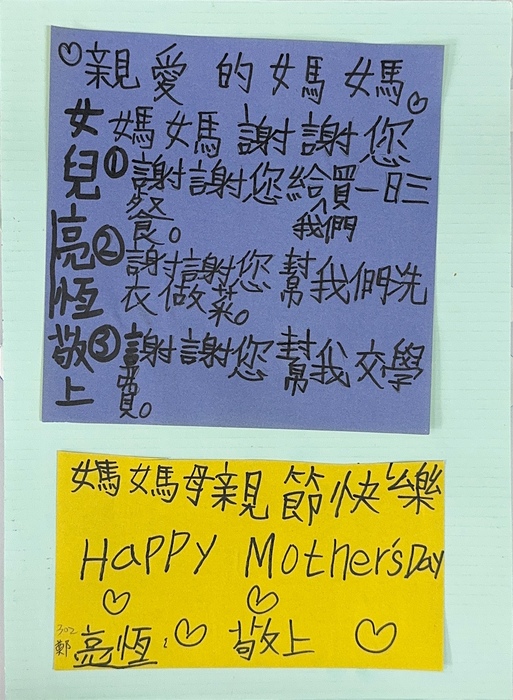 ♡親愛的媽媽♡
媽媽謝謝您
①謝謝您給買一日三
餐食。
我們
②謝謝您幫我們洗
衣做菜。
③謝謝您幫我交學
費。
女兒亮恆敬上
媽媽母親節快樂
Happy Mother's Day
♡ ♡
302
鄭亮恆 ♡ 敬上 ♡